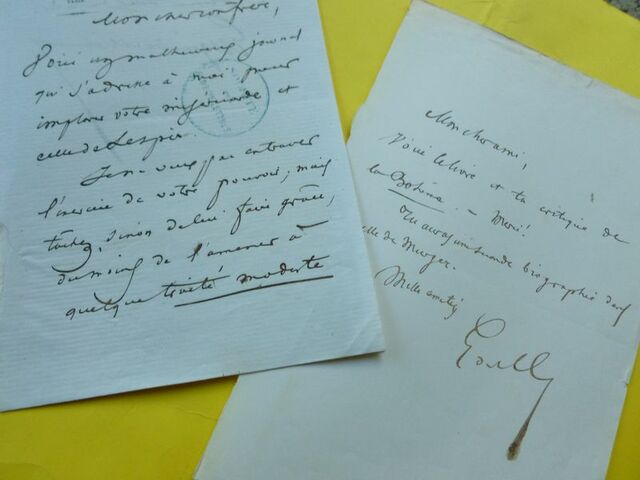 Mon cher confrère,
Voici un malheureux journal
qui s'adresse à moi pour
implorer votre miséricorde et
celle de Lespès.
Je ne veux pas entraver
l'exercice de votre pouvoir, mais
tâchez, sinon de lui faire grâce,
du moins de l'amener à
quelque traité modeste
Mon cher ami,
Voici le livre et ta critique de
la Bohême. – Merci!
Tu auras une seconde biographie dans
celle de Murger.
Mille amitiés